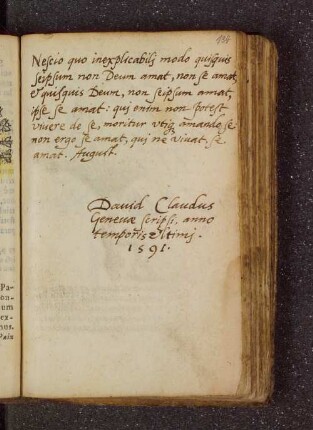 134
Nescio quo inexplicabilj modo quisquis
seipsum non Deum amat, non se amat,
& quisquis Deum, non seipsum amat,
ipse se amat: qui enim non potest
viuere de se, moritur vtiq; amando se.
non ergo se amat, qui ne viuat, se
amat. August.
Dauid Claudus
Geneuæ scripsi, anno
temporis vltimj.
1591.
Pa-
on-
um
ex-
nus.